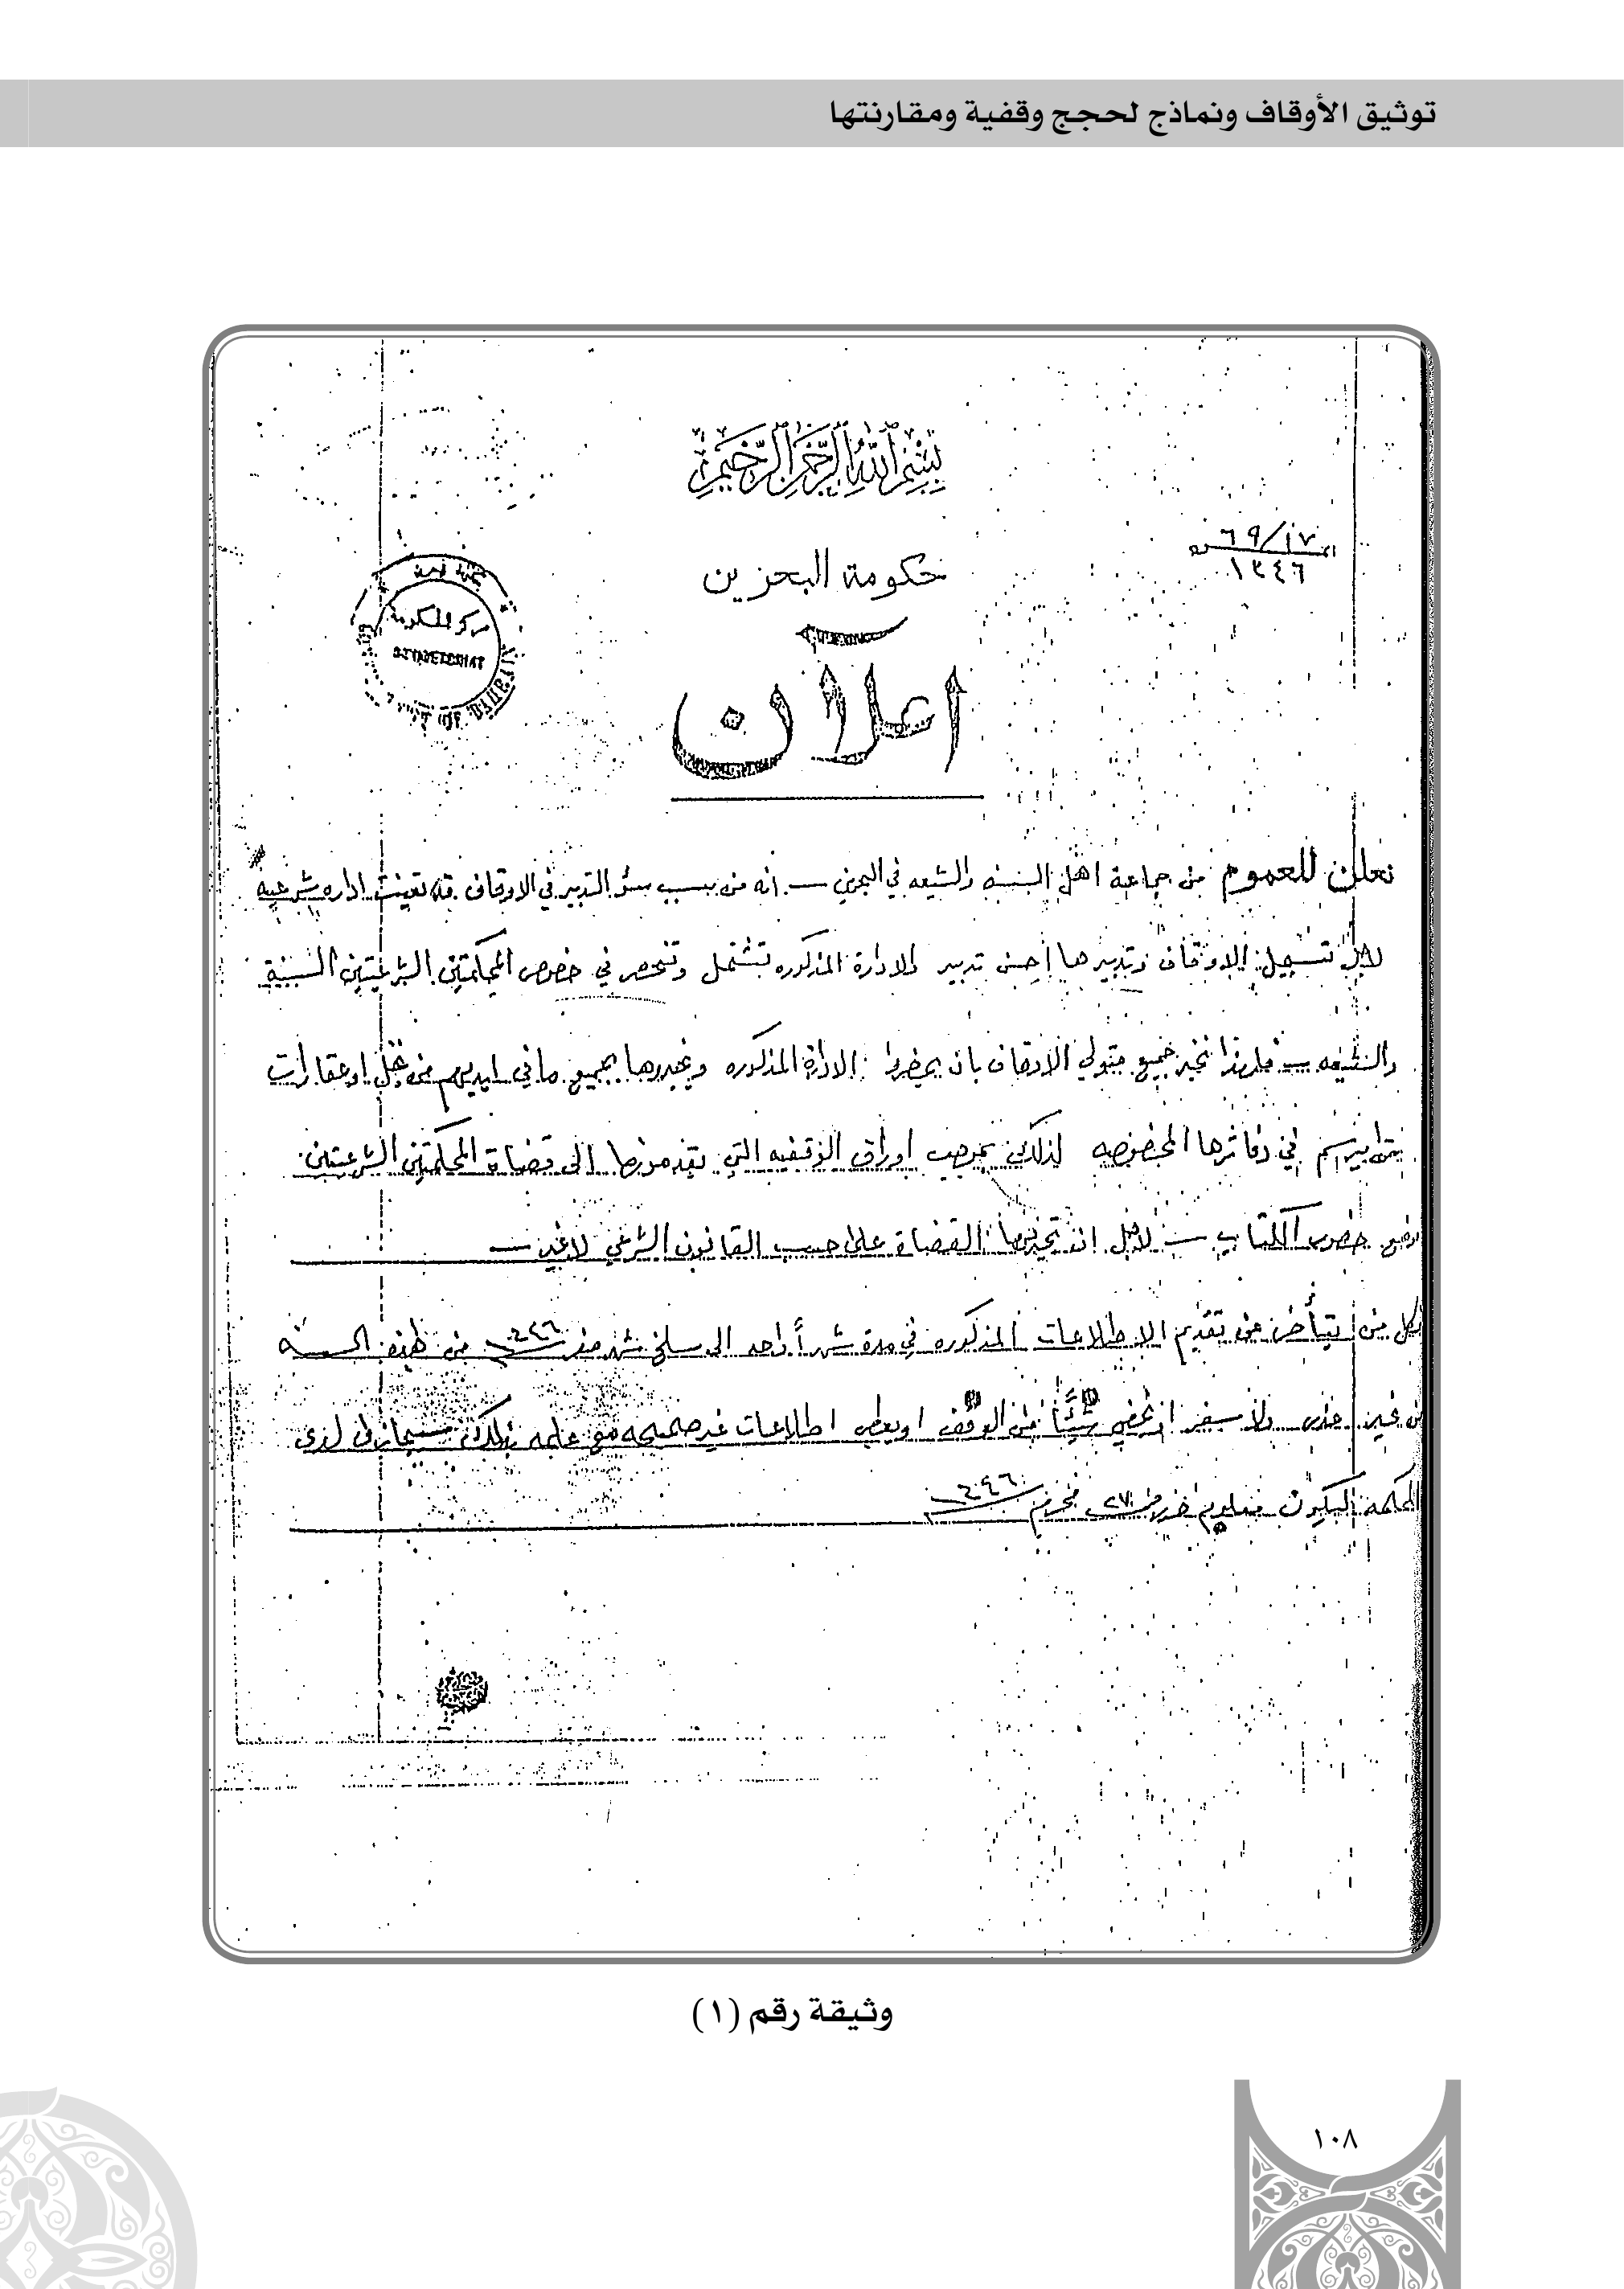 توثيق الأوقاف ونماذج لحجج وقفية ومقارنتها
بسم الله الرحمن الرحيم
٦٩/١٧
١٣٤٦
حكومة البحرين
مركز الحكومة
OF BAHRAIN
اعلان
نعلن للعموم من جماعة اهل السنه والشيعه في البحرين — انه من سبب سؤ التدبير في الاوقاف قد تعينت اداره شرعيه
لاجل تسجيل الاوقاف وتدبيرها احسن تدبير والادارة المذكوره تشتمل وتنحصر في خصوص المحكمتين الشرعيتين السنية
والشيعه — فلهذا نخبر جميع متولي الاوقاف بان يحضروا الادارة المذكوره ويخبروها بجميع ما في ايديهم من نخل او عقارات
في دفاترها المخصوصه لذلك بموجب اوراق الوقفيه التي يقدمونها الى قضاة المحكمتين الشرعيتين
حضور الكتاب — لاجل القضاة على حسب القانون الشرعي لاغير —
كل من يتأخر عن تقديم الاطلاعات المذكوره في مدة شهراً واحد الى سلخ شهر صفر ١٣٤٦ من هذه السنه
من غير عذر ولا سفر او يخفي شيئاً من الوقف او يعطي اطلاعات غير صحيحه مع علمه بذلك سيجازى لدى
المحكمه ليكون معلوم حرر في ٢٧ محرم ١٣٤٦
وثيقة رقم (١)
١٠٨